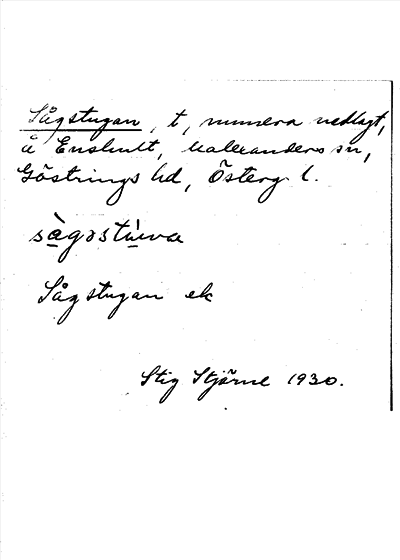 Sågstugan, t, numera nedlagt,
å Enshult, Malexanders sn,
Göstrings hd, Österg. l.
sàgəstùwa
Sågstugan ek
Stig Stjärne 1930.